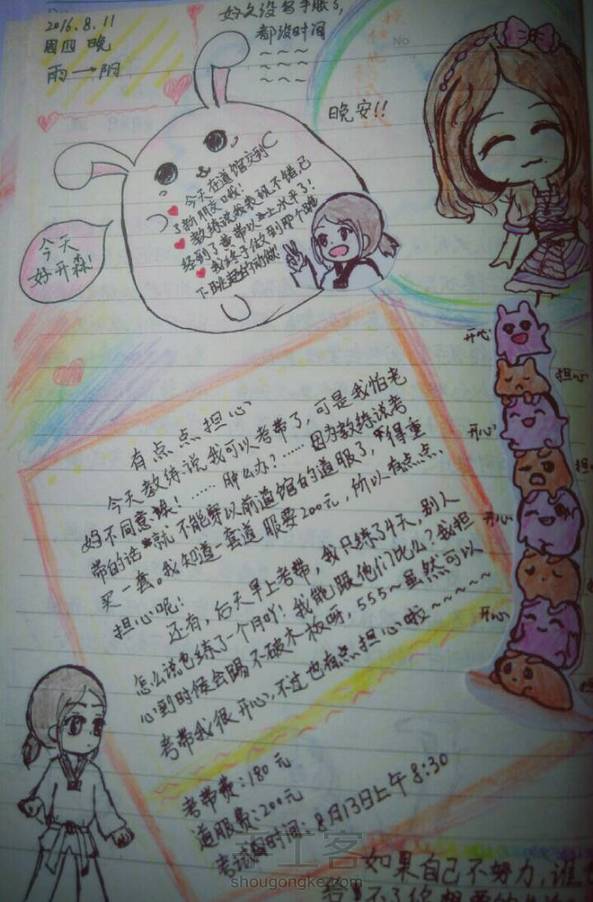 2016.8.11
周四 晚
雨→阴
好久没写手账了,
都没时间
~~~
~~~
~~~
No
晚安!!
今天在道馆交到
了新朋友哦!
教练说我表现不错,已
经到了黄带以上水平了!
下
今天
好开森!
开心
担心
开心
担
开心
开心
有点点担心
今天教练说我可以考带了,可是我怕老
妈不同意诶!……肿么办?……因为教练说考
带的话就不能穿以前道馆的道服了,得重
买一套。我知道一套道服要200元,所以有点点
担心呢!
还有,后天早上考带,我只练了4天,别人
怎么说也练了一个月吖!我能跟他们比么?我担
心到时候会踢不破木板呀,555~虽然可以
考带我很开心,不过也有点担心啦~~~~~
考带费:180元
道服费:200元
考试时间:8月13日上午8:30
如果自己不努力,谁
给不了你想要的
shougongke.com